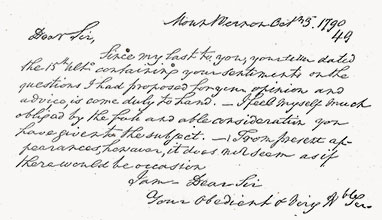 Mount Vernon Oct 5th 1790
49
Dear Sir,
Since my last to you, your letter dated
the 15th Ulto containing your sentiments on the
questions I had proposed for your opinion and
advice, is come duly to hand. — I feel myself much
obliged by the full and able consideration you
have given to the subject. — From present ap-
pearances, however, it does not seem as if
there would be occasion
I am — Dear Sir
Your Obedient & Very Hble Ser